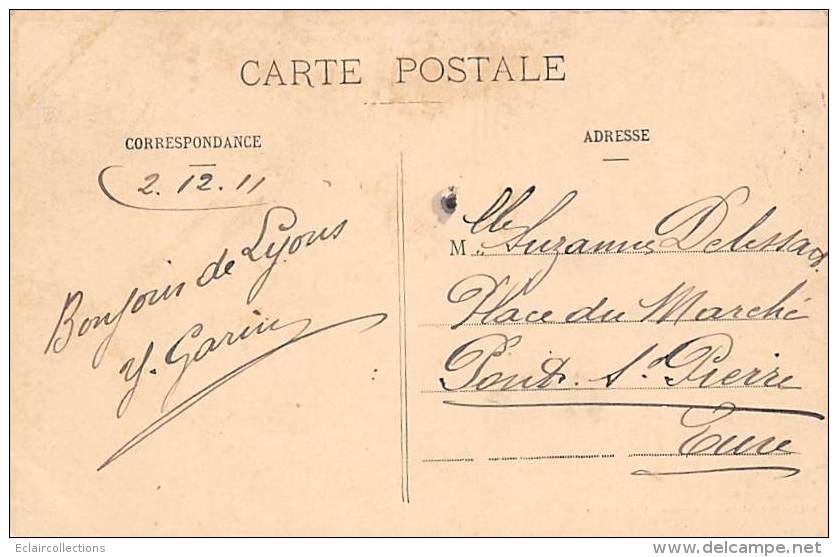 CARTE POSTALE
CORRESPONDANCE
2.12.11
Bonjour de Lyons
Y. Garin
ADRESSE
Mlle Suzanne
Place du Marché
Pont-St-Pierre
Eure
Eclaircollections
www.delcampe.net